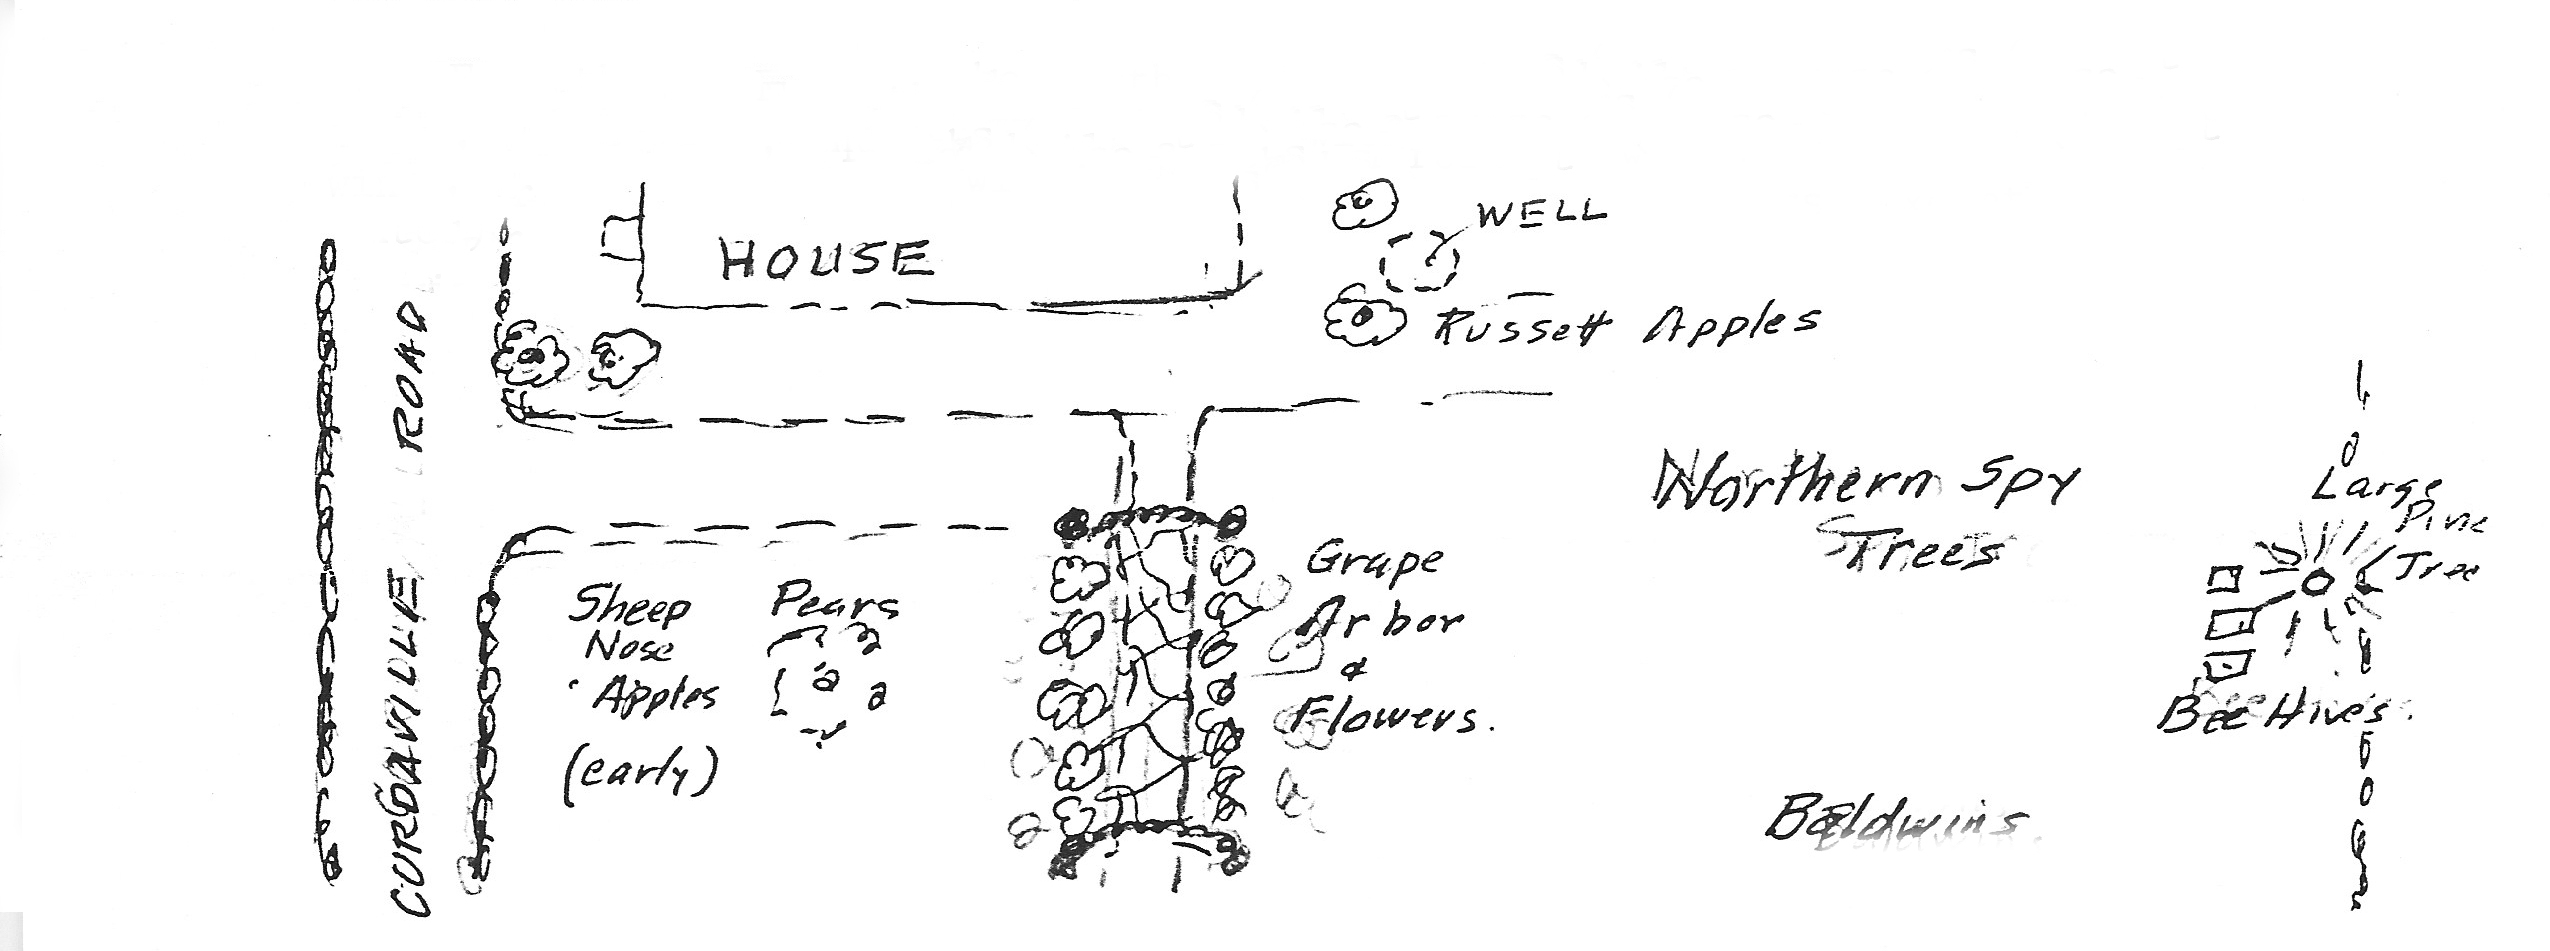 WELL
HOUSE
Russett Apples
CORDAVILLE ROAD
Northern Spy
Trees
Large
Pine
Tree
Grape
Arbor
&
Flowers.
Sheep
Nose
Apples
(early)
Pears
Bee Hives.
Baldwins.